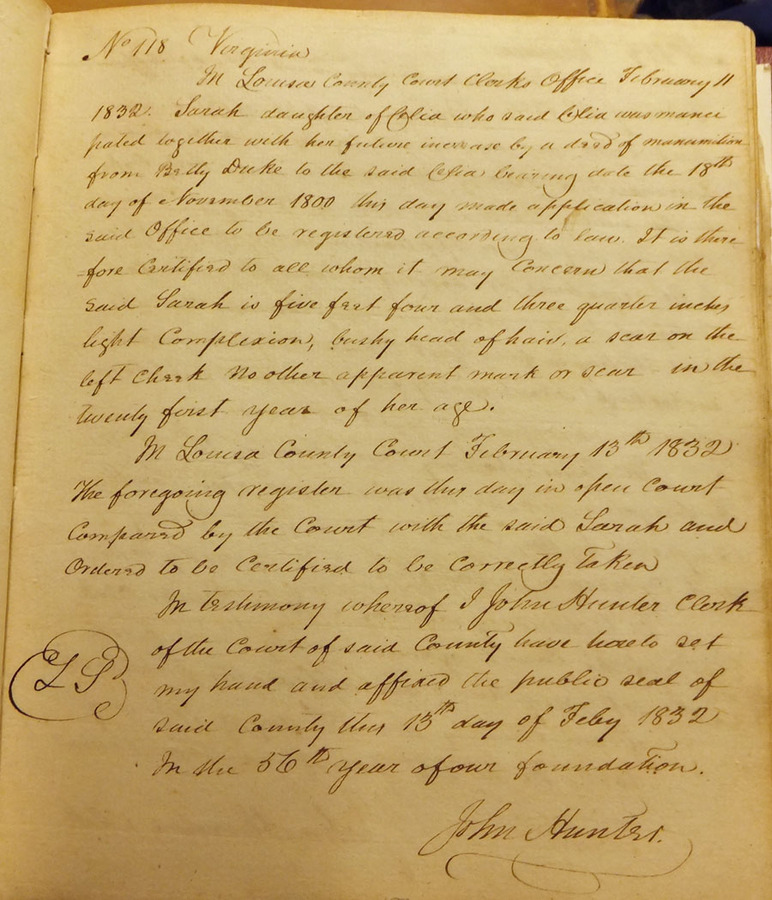 No 118 Virginia
In Louisa County Court Clerks Office February 11
1832. Sarah daughter of Celia who said Celia was manci
pated together with her future increase by a deed of manumition
from Betty Duke to the said Celia bearing date the 18th
day of November 1800 this day made application in the
said Office to be registered according to law. It is there
fore Certified to all whom it may Concern that the
said Sarah is five feet four and three quarter inches
light Complexion, bushy head of hair, a scar on the
left cheek No other apparent mark or scar - in the
twenty first year of her age.
In Louisa County Court February 13th 1832
The foregoing register was this day in open Court
Compared by the Court with the said Sarah and
Ordered to be Certified to be Correctly Taken
In testimony whereof I John Hunter Clerk
of the Court of said County have hereto set
my hand and affixed the public seal of
L S
said County this 13th day of Feby 1832
In the 56th year of our foundation.
John Hunter.